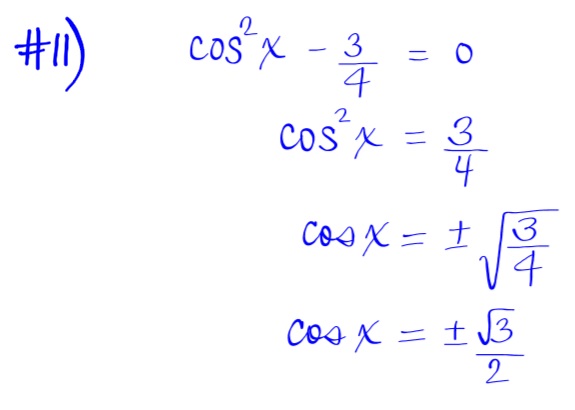 #11) cos²x - 3/4 = 0
cos²x = 3/4
cos x = ± √(3/4)
cos x = ± √3/2